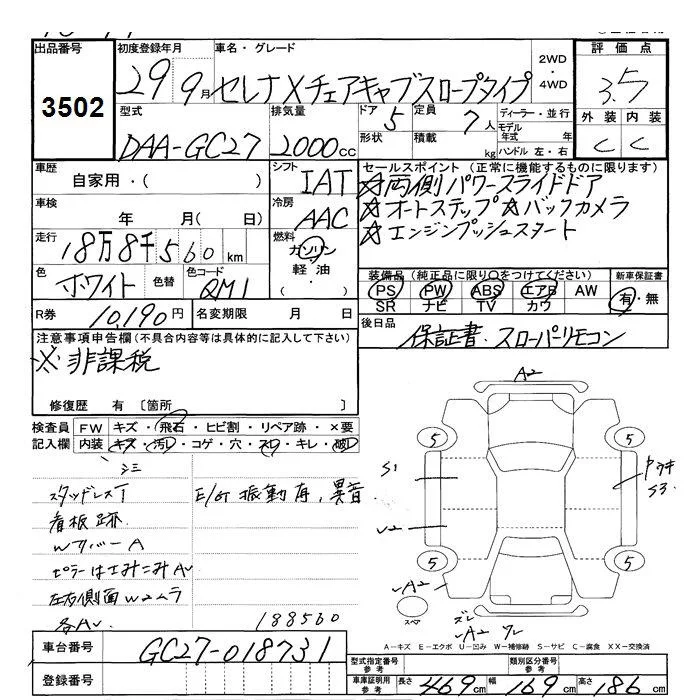 出品番号 3502
初度登録年月 29 9月
車名・グレード セレナXチェアキャブスロープタイプ
2WD・4WD
評価点 3.5
外装 内装
C C
型式 DAA-GC27
排気量 2000cc
ドア 5 形状
定員 7人 積載 kg
ディーラー・並行
モデル年式 年
ハンドル 左・右
車歴 自家用・( )
シフト IAT
車検 年 月( 日)
冷房 AAC
走行 18万8千560km
燃料 ガソリン 軽油 ・( )
色 ホワイト 色替 色コード QM1
R券 10,190円 名変期限 月 日
セールスポイント(正常に機能するものに限ります)
☆両側パワースライドドア
☆オートステップ ☆バックカメラ
☆エンジンプッシュスタート
装備品(純正品に限り○をつけてください) 新車保証書
PS PW ABS エアB AW 有・無
SR ナビ TV カワ
後日品 保証書・スローパーリモコン
注意事項申告欄(不具合内容等は具体的に記入して下さい)
※非課税
修復歴 有 〔箇所 〕
検査員記入欄 FW キズ・飛石・ヒビ割・リペア跡・×要
内装 キズ・汚レ・コゲ・穴・スレ・キレ・破レ
シミ
スタッドレスT E/G振動有、異音
看板跡
WカバーA
左右側面Wムラ
各AU
188560
A2
5 5
S1
S3
U2
5 5
A2
スペア
A2
A－キズ E－エクボ U－凹み W－補修跡 S－サビ C－腐食 XX－交換済
車台番号 GC27-018731
登録番号
型式指定番号 参考 類別区分番号 参考
車庫証明用 参考 長さ 469cm 幅 169cm 高さ 186cm